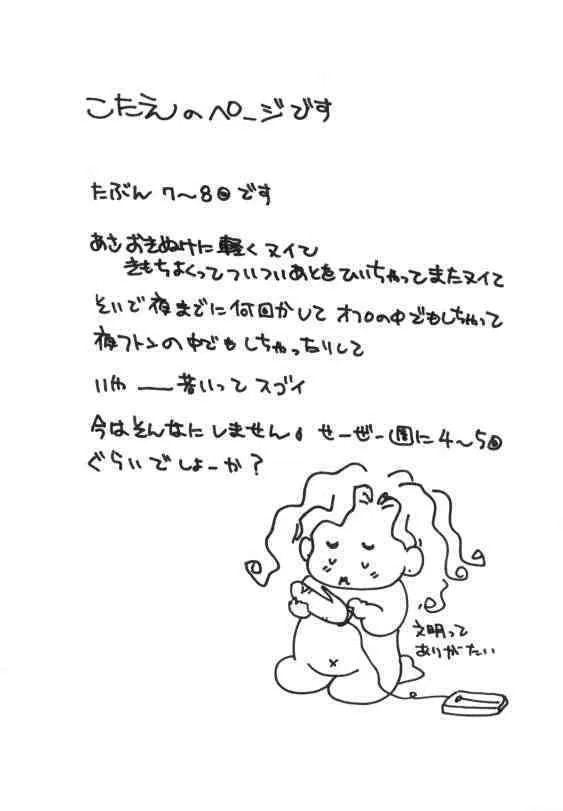 こたえのページです
たぶん 7〜8回です
あさおきぬけに軽くヌイて
きもちよくってついついあとをひいちゃってまたヌイて
そいで夜までに何回かして オフロの中でもしちゃって
夜フトンの中でも しちゃったりして
いやー 若いって スゴイ
今はそんなにしません。せーぜー週に4〜5回
ぐらいでしょーか?
文明って
ありがたい